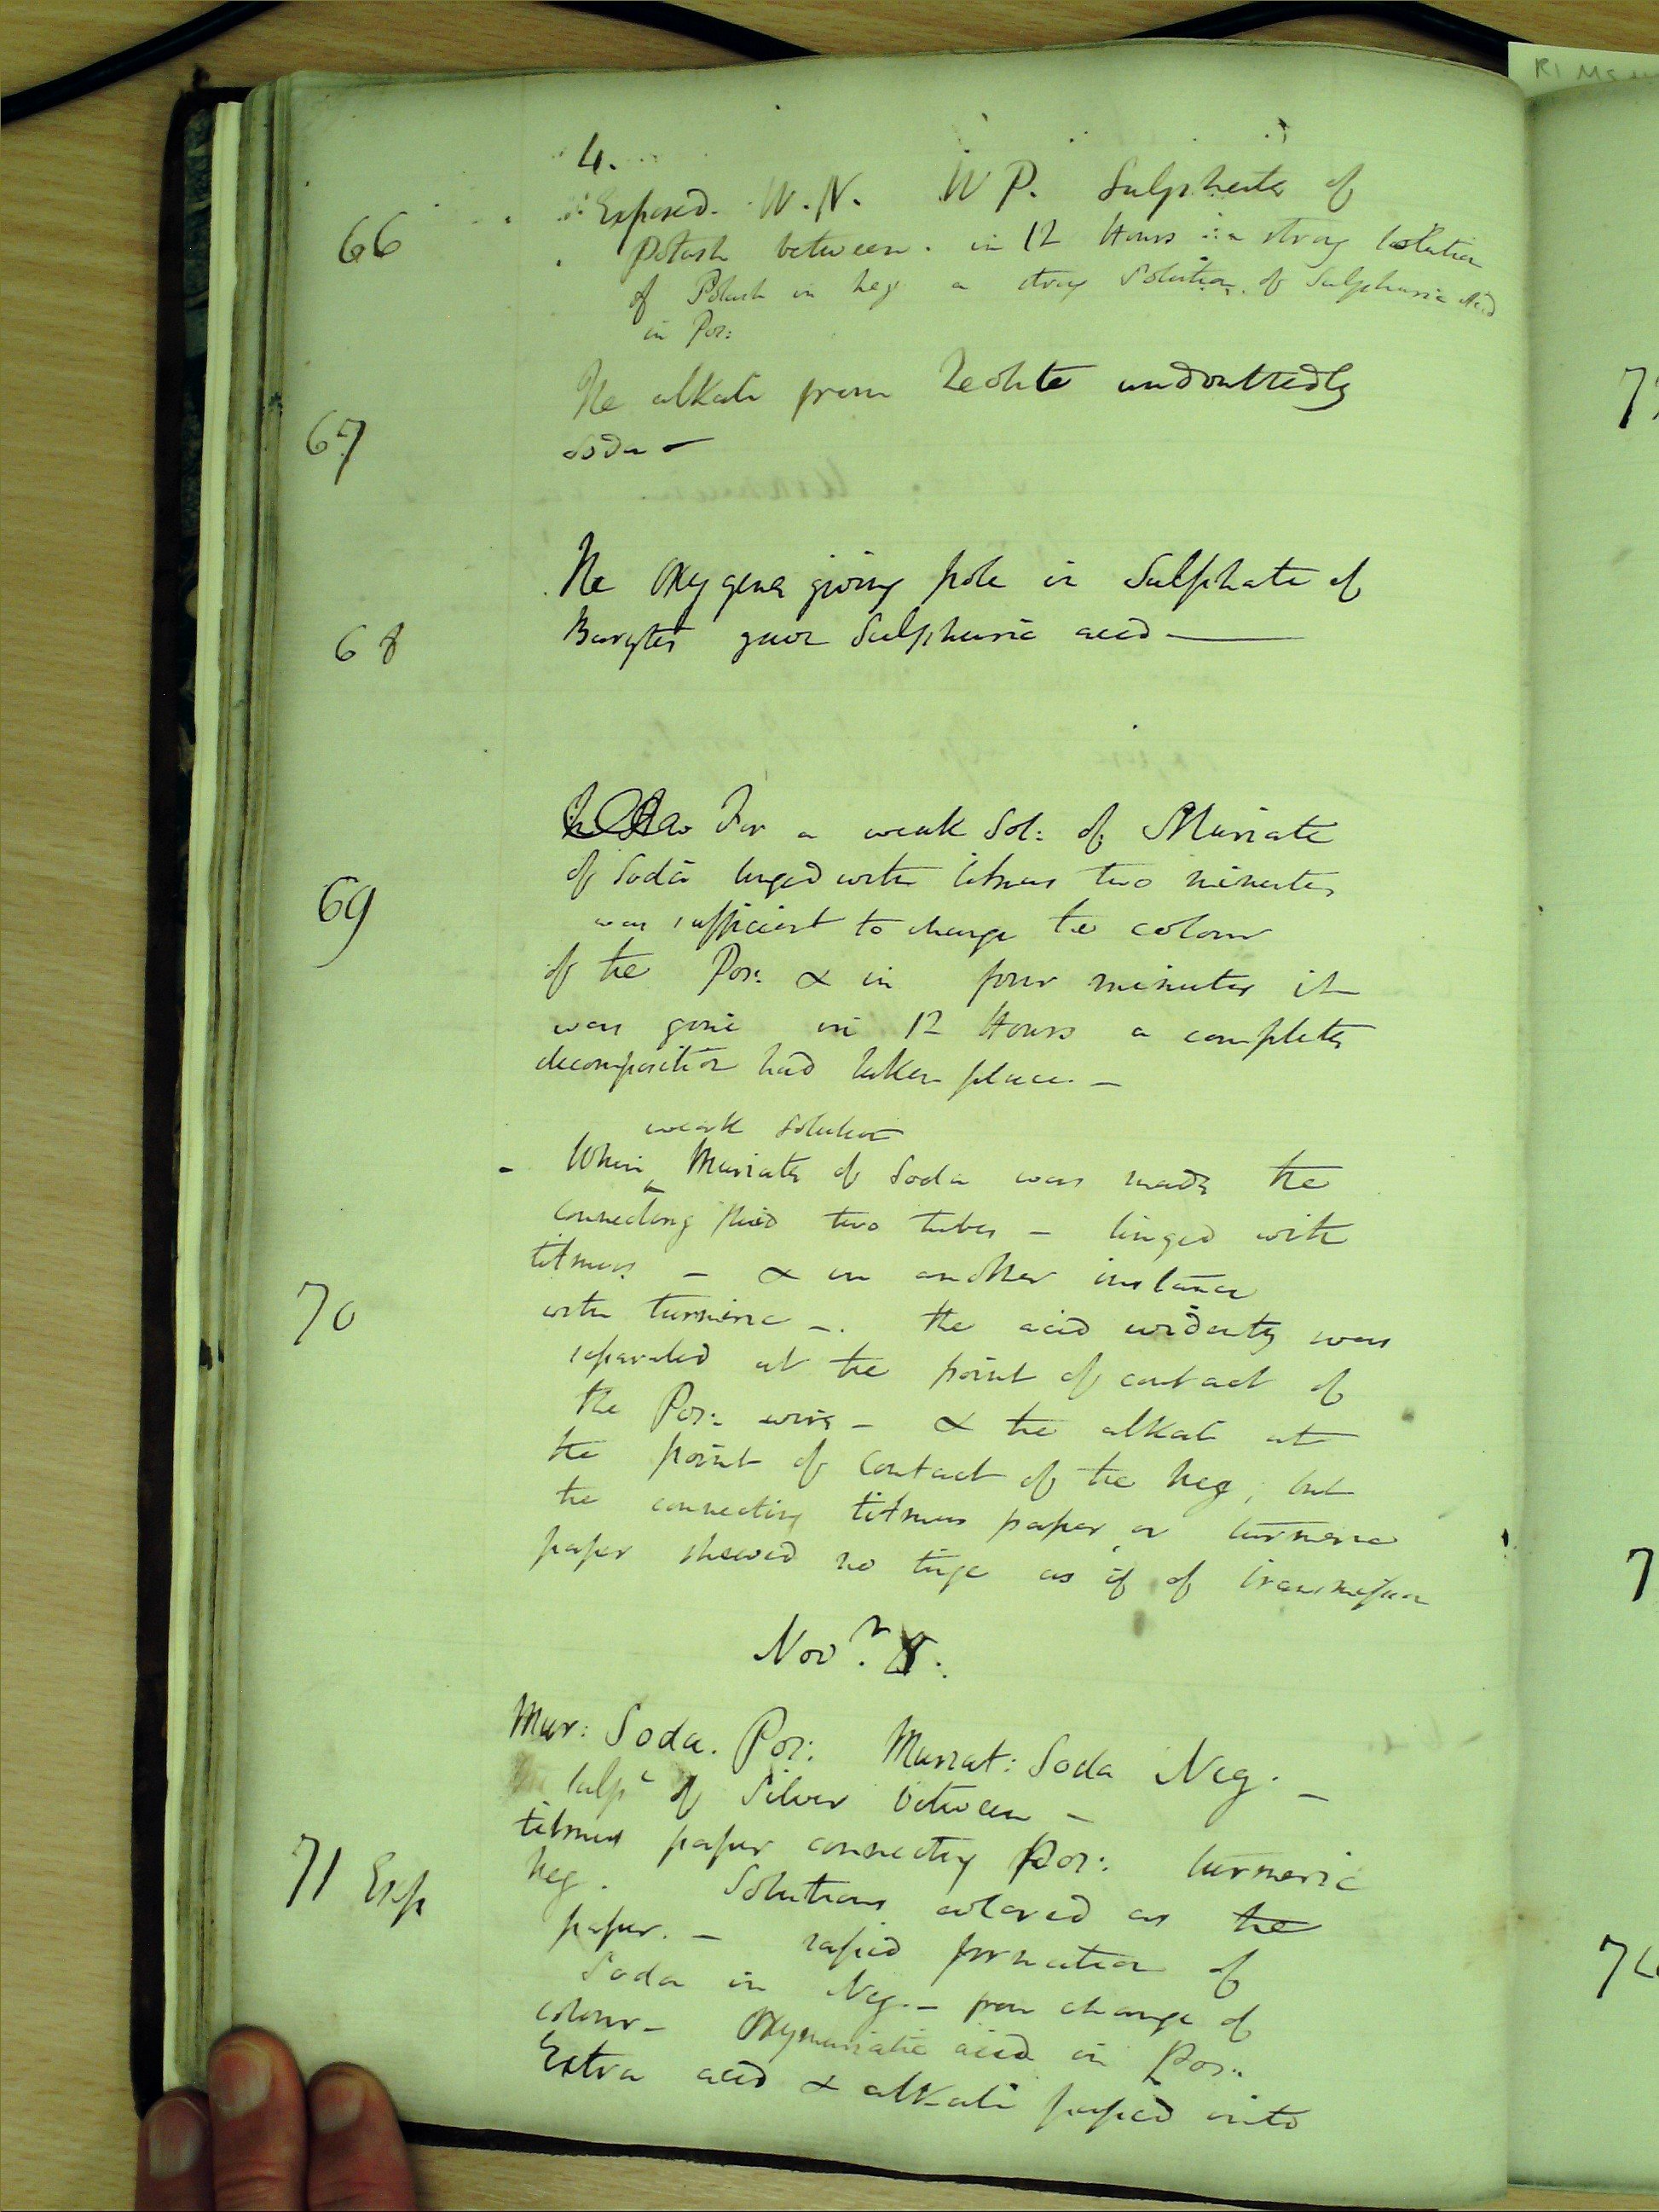 4.
66 Exposed. W.N. W P. Sulphate of
Potash between. in 12 Hours a strong solution
of Potash in Neg a strong Solution of Sulphuric Acid
in Pos:
67 The alkali from Zeolite undoubtedly
soda —
68 The oxygene giving pole in Sulphate of
Barytes gave Sulphuric acid —
For a weak Sol: of Muriate
69 of Soda tinged with litmus two minutes
was sufficient to change the colour
of the Pos: & in four minutes it
was gone in 12 Hours a complete
decomposition had taken place. —
weak solution
- When ^ Muriate of Soda was made the
connecting fluid two tubes — tinged with
litmus — & in another instance
70 with turmeric —. the acid evidently was
separated at the point of contact of
the Pos: wire — & the alkali at
the point of contact of the Neg, but
the connecting litmus paper or turmeric
paper shewed no tinge as if of transmission
Novr. 8.
Mur: Soda. Pos: Muriat: Soda Neg. —
Sulpt of Silver between —
litmus paper connecting Pos: turmeric
71 Exp Neg. Solutions colored as the
paper. — rapid formation of
Soda in Neg. — from change of
colour — Oxymuriatic acid in Pos:
Extra acid & alkali passed into
RI MS
7
7
7